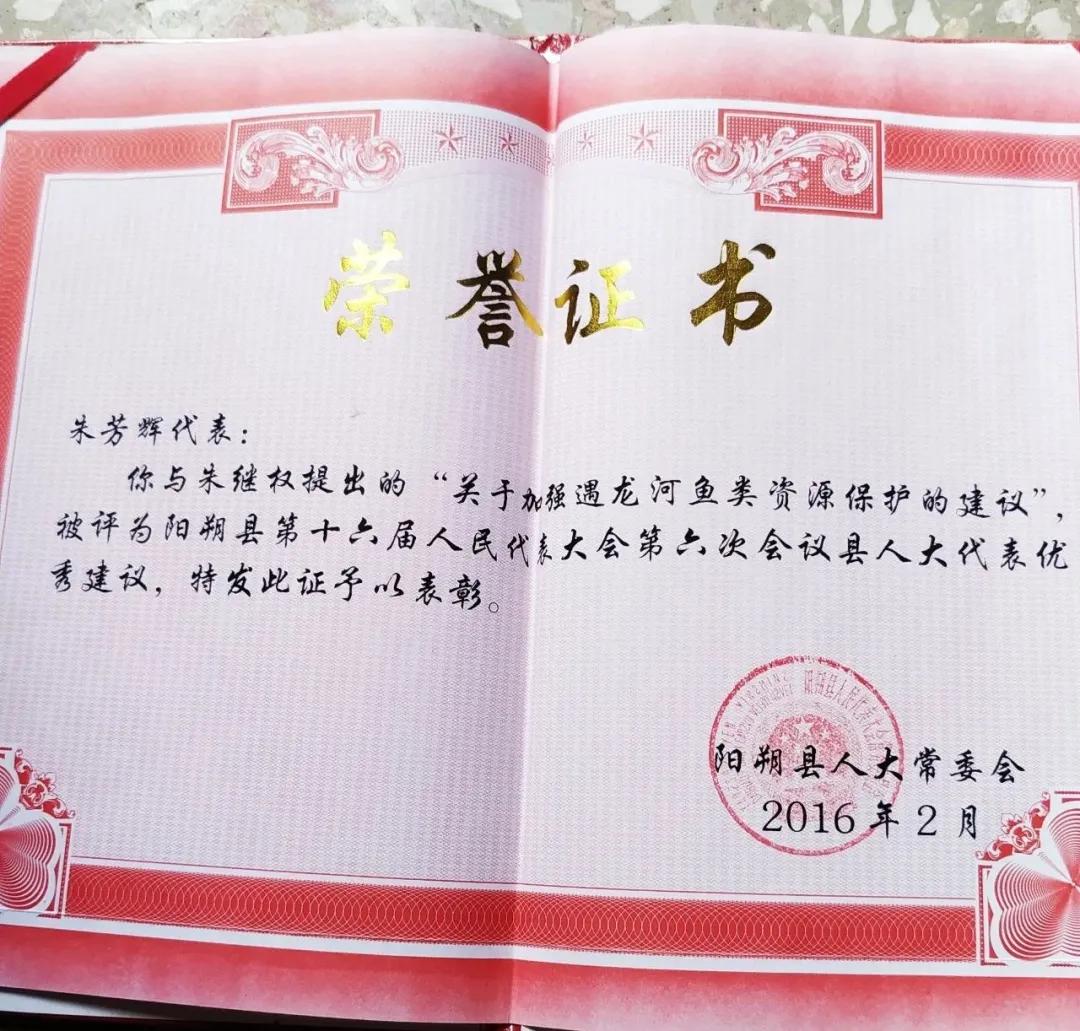 荣誉证书
朱芳辉代表：
你与朱继权提出的“关于加强遇龙河鱼类资源保护的建议”，
被评为阳朔县第十六届人民代表大会第六次会议县人大代表优
秀建议，特发此证予以表彰。
阳朔县人大常委会
2016年2月